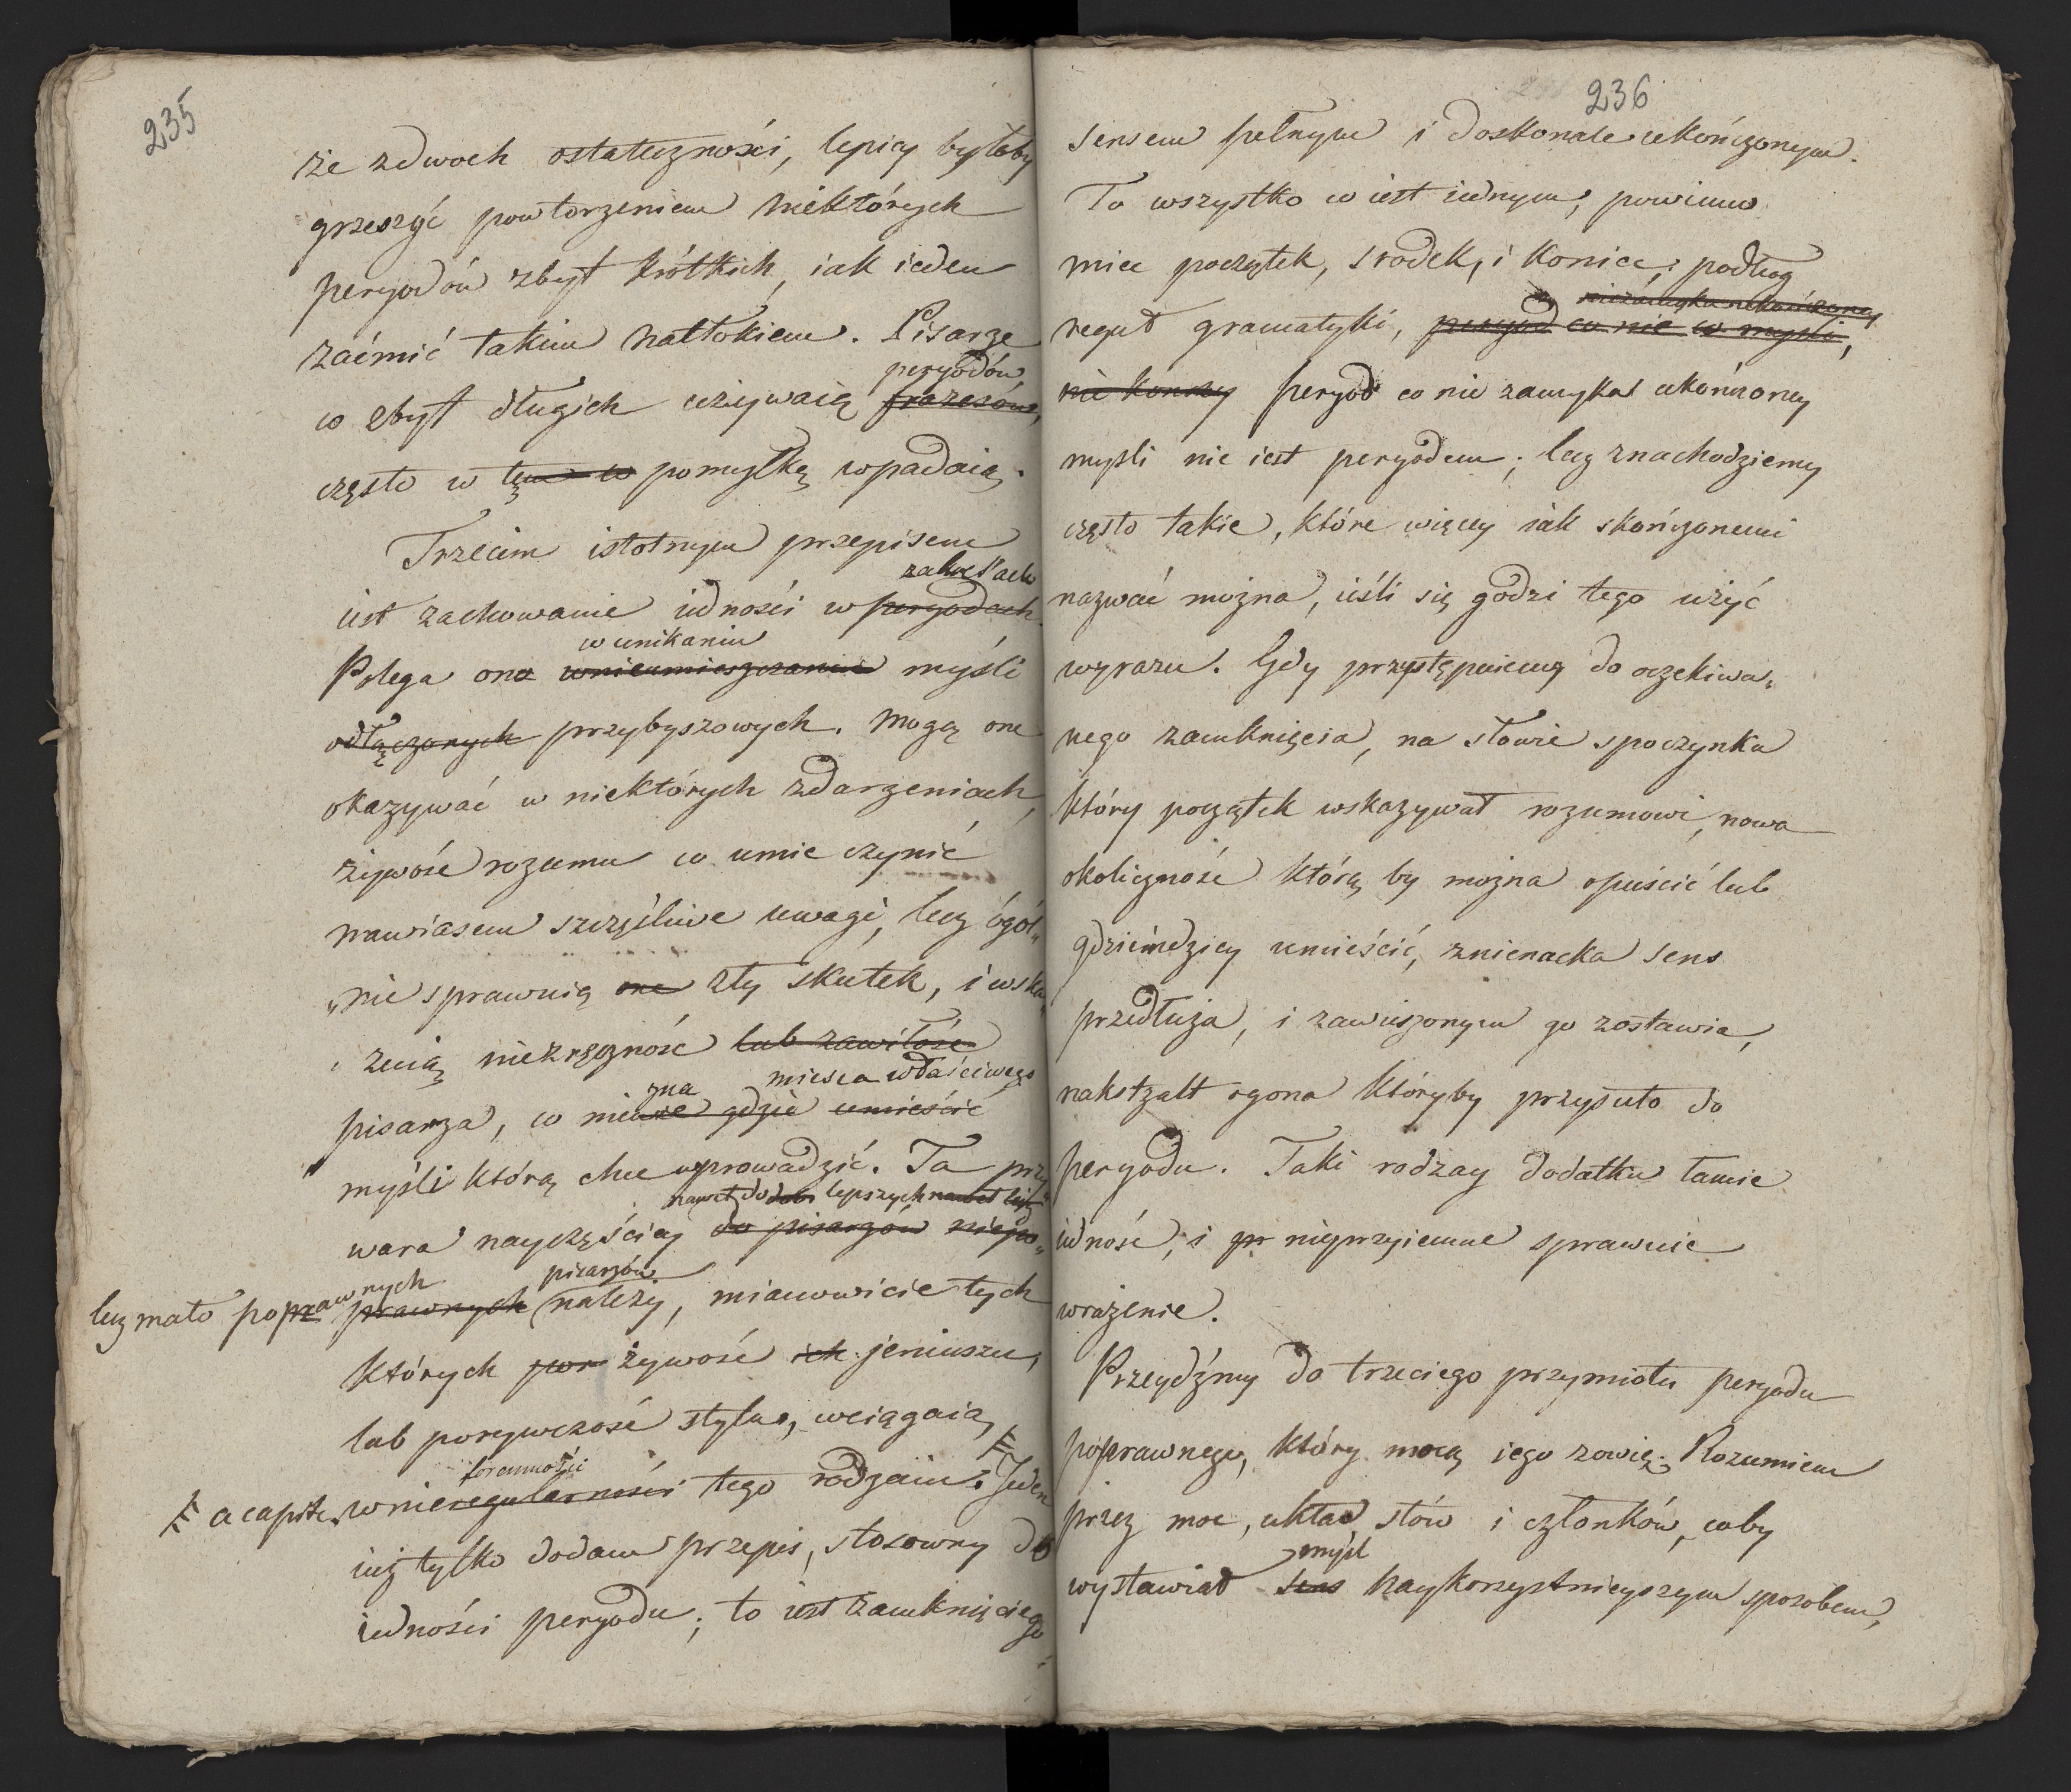 235
że zdwoch ostateczności, lepiey byłoby
grzeszyć powtorzeniem niektórych
peryodów zbyt krótkich, iak ieden
zaćmić takim natłokiem. Pisarze
peryodów
co zbyt długich używaią frazesów,
często w tę pomyłkę wpadaią.
Trzecim istotnym przepisem
zakresach
iest zachowanie iedności w peryodach.
w unikaniu
Polega ona wnieumieszczaniu myśli
odłączonych przybyszowych. Mogą one
okazywać w niektórych zdarzeniach,
żywość rozumu co umie czynić
nawiasem szczęśliwe uwagi, lecz ogól„
„nie sprawuią one zły skutek, i wska„
zuią niezręczność lub zawiłość
zna miesca właściwego
pisarza, co nie wie gdzie umieścić
myśli którą chce wprowadzić. Ta przy„
nawet do lepszych nawet lub
wara nayczęściey do pisarzów niepo„
pisarzów
lecz mało poprawnych prawnych należy, mianowicie tych
których por żywość ich jeniuszu,
lub porywczość stylu, wciągaią
foremności
a capite wnieregularności tego rodzaiu. Jeden
iuż tylko dodam przepis, stosowny do
iedności peryodu; to iest zamknięciego
236
sensem pełnym i doskonale ukończonym.
To wszystko co iest iednym, powinno
miec początek, srodek, i koniec; podług
niezamyka ukończoney
reguł gramatyki, peryod co nie w myśli,
nie konczy peryod co nie zamyka ukończoney
myśli nie iest peryodem; lecz znachodziemy
często takie, które więcey iak skończonemi
nazwać można, ieśli się godzi tego użyć
wyrazu. Gdy przystępuiemy do oczekiwa„
nego zamknięcia, na słowie spoczynku
który początek wskazywał rozumowi, nowa
okoliczność którą by można opuścić lub
gdzieindziey umieścić, znienacka sens
przedłuża, i zawieszonym go zostawia,
nakształt ogona któryby przypięto do
peryodu. Taki rodzay dodatku łamie
iedność, i pr nieprzyiemne sprawuie
wrażenie.
Przeydźmy do trzeciego przymiotu peryodu
poprawnego, który mocą iego zowią. Rozumiem
przez moc, układ słów i członków, coby
zmysł
wystawiał sens naykorzystnieyszym sposobem,